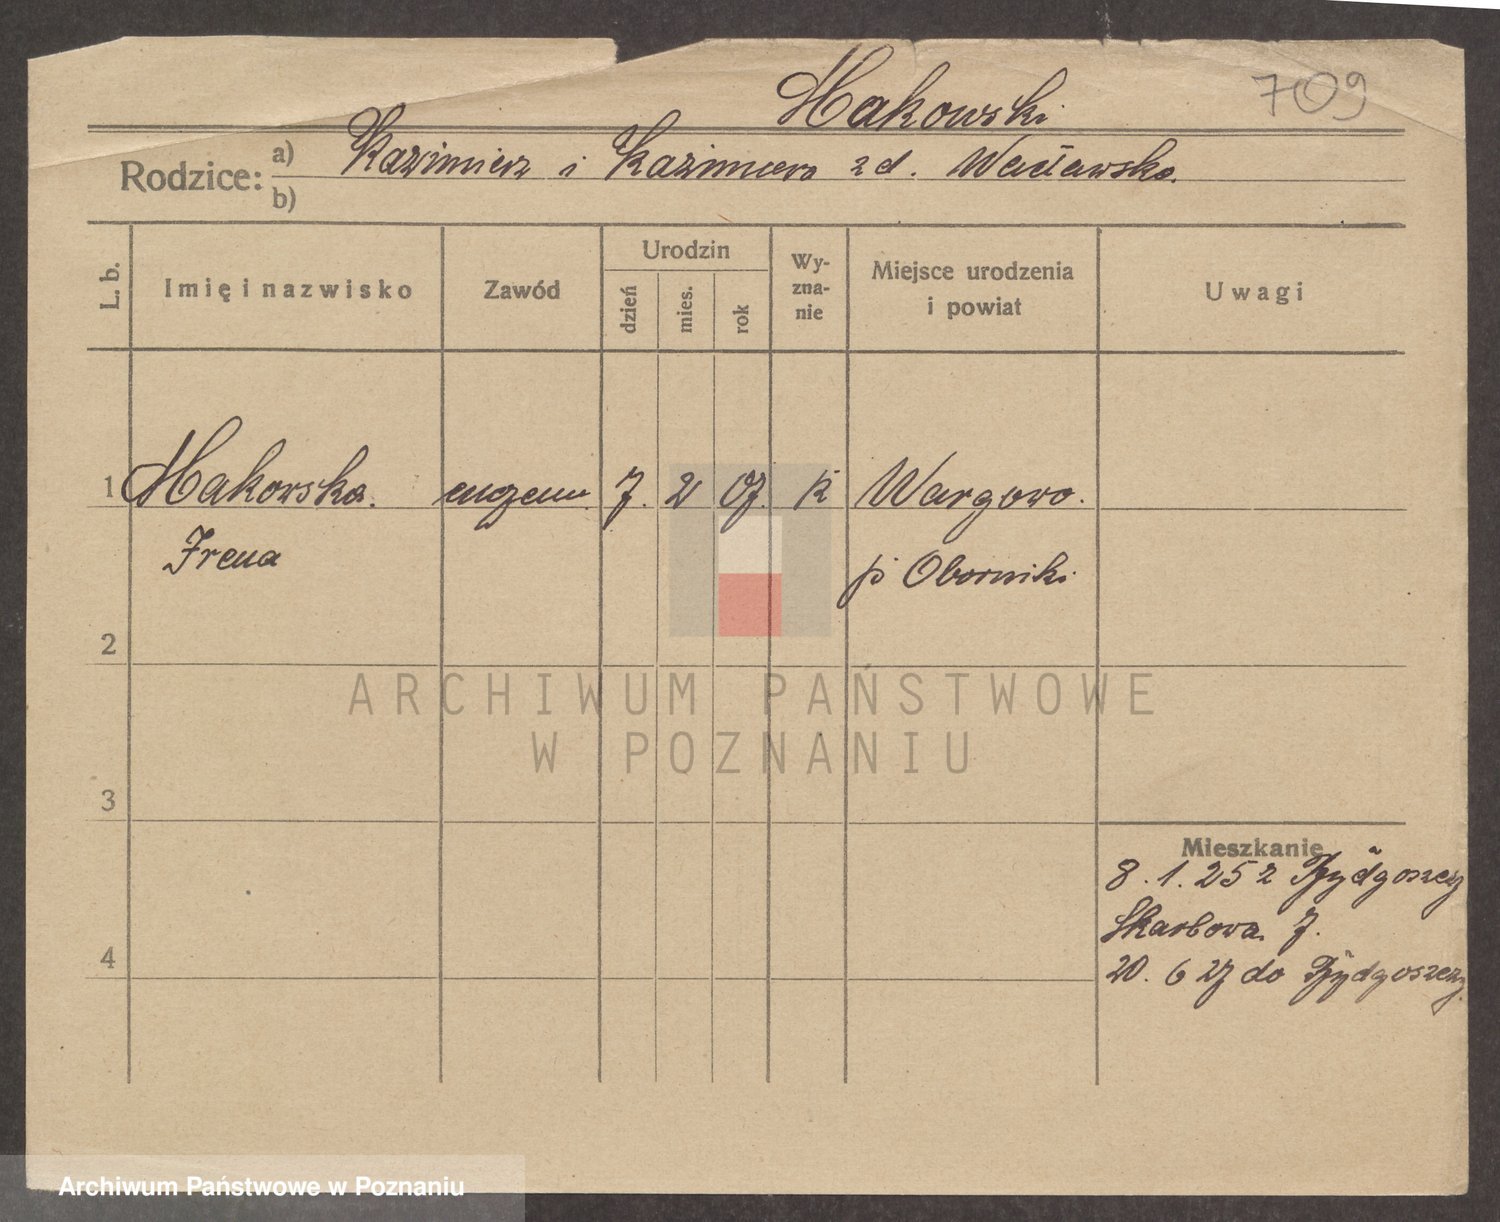 709
Makowski
Rodzice: a) Kazimierz i Kazimiera z d. Wacławska.
b)
L. b.
Imię i nazwisko
Zawód
Urodzin
dzień
mies.
rok
Wy-
zna-
nie
Miejsce urodzenia
i powiat
Uwagi
1 Makowska. 7. 2 07. k Wargowo.
Irena p. Oborniki
2
ARCHIWUM PAŃSTWOWE
W POZNANIU
3
Mieszkanie
8. 1. 25 z Bydgoszczy
Skarbowa 7.
4
20. 6 27 do Bydgoszczy
Archiwum Państwowe w Poznaniu